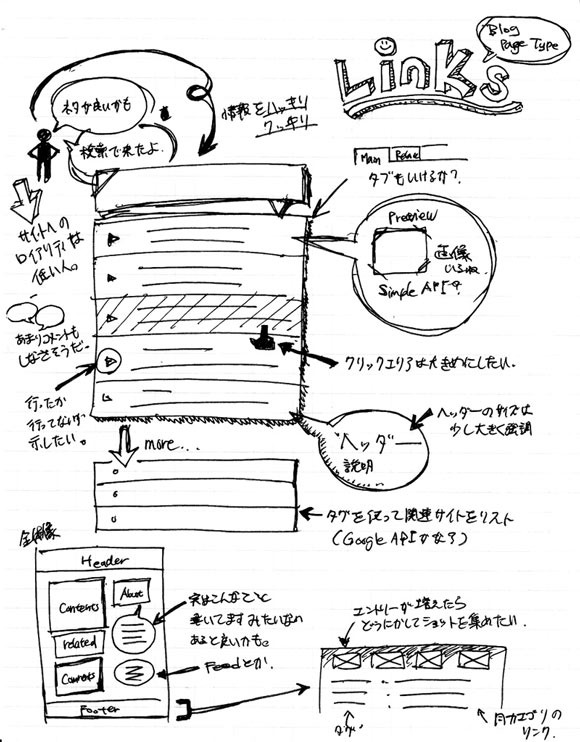 Blog
Page Type
Links
ネタが良いかも
検索で来たよ.
情報をハッキリ
クッキリ
Main
タブもいけるか?
サイトへの
ロイアリティは
低い人。
Preview
画像
いるね.
Simple API?
あまりコメントも
しなさそうだ~
クリックエリアは大きめにしたい.
行ったか
行ってないか
示したい。
more...
ヘッダー
説明
ヘッダーのサイズは
少し大きく強調
タグを使って関連サイトをリスト
(Google APIかな?)
全体像
Header
Contents
About
related
Footer
実はこんなこと
書いてます みたいなの
あると良いかも。
Feedとか.
エントリーが増えたら
どうにかしてショットを集めたい.
月カテゴリの
リンク.